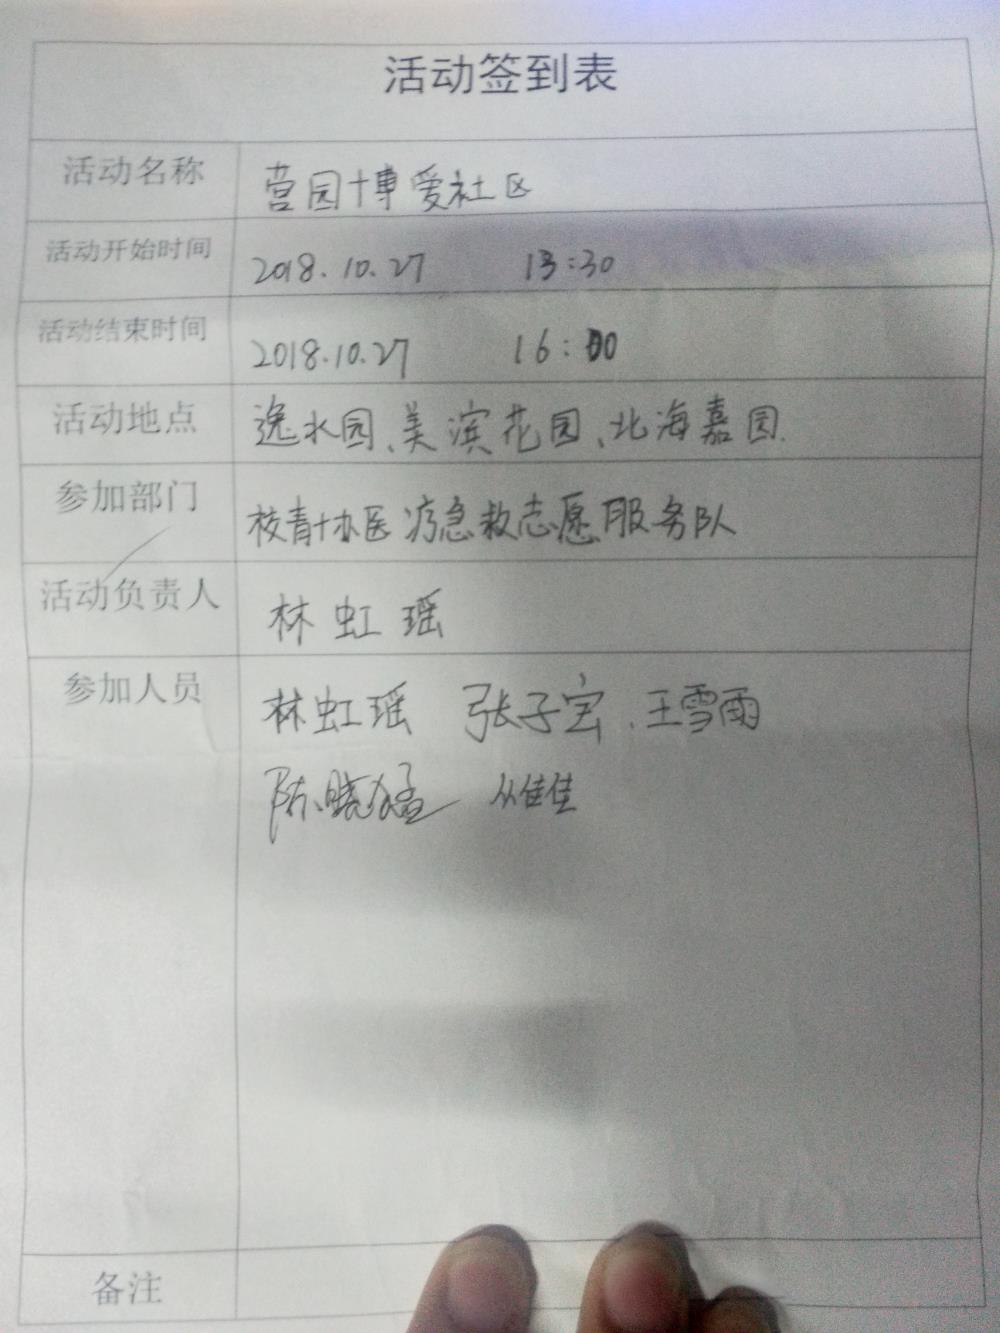 活动签到表
活动名称 营园博爱社区
活动开始时间 2018.10.27 13:30
活动结束时间 2018.10.27 16:00
活动地点 逸水园、美滨花园、北海嘉园.
参加部门 校青协医疗急救志愿服务队
活动负责人 林虹瑶
参加人员 林虹瑶 张子宏、王雪雨
陈晓猛 丛佳佳
备注